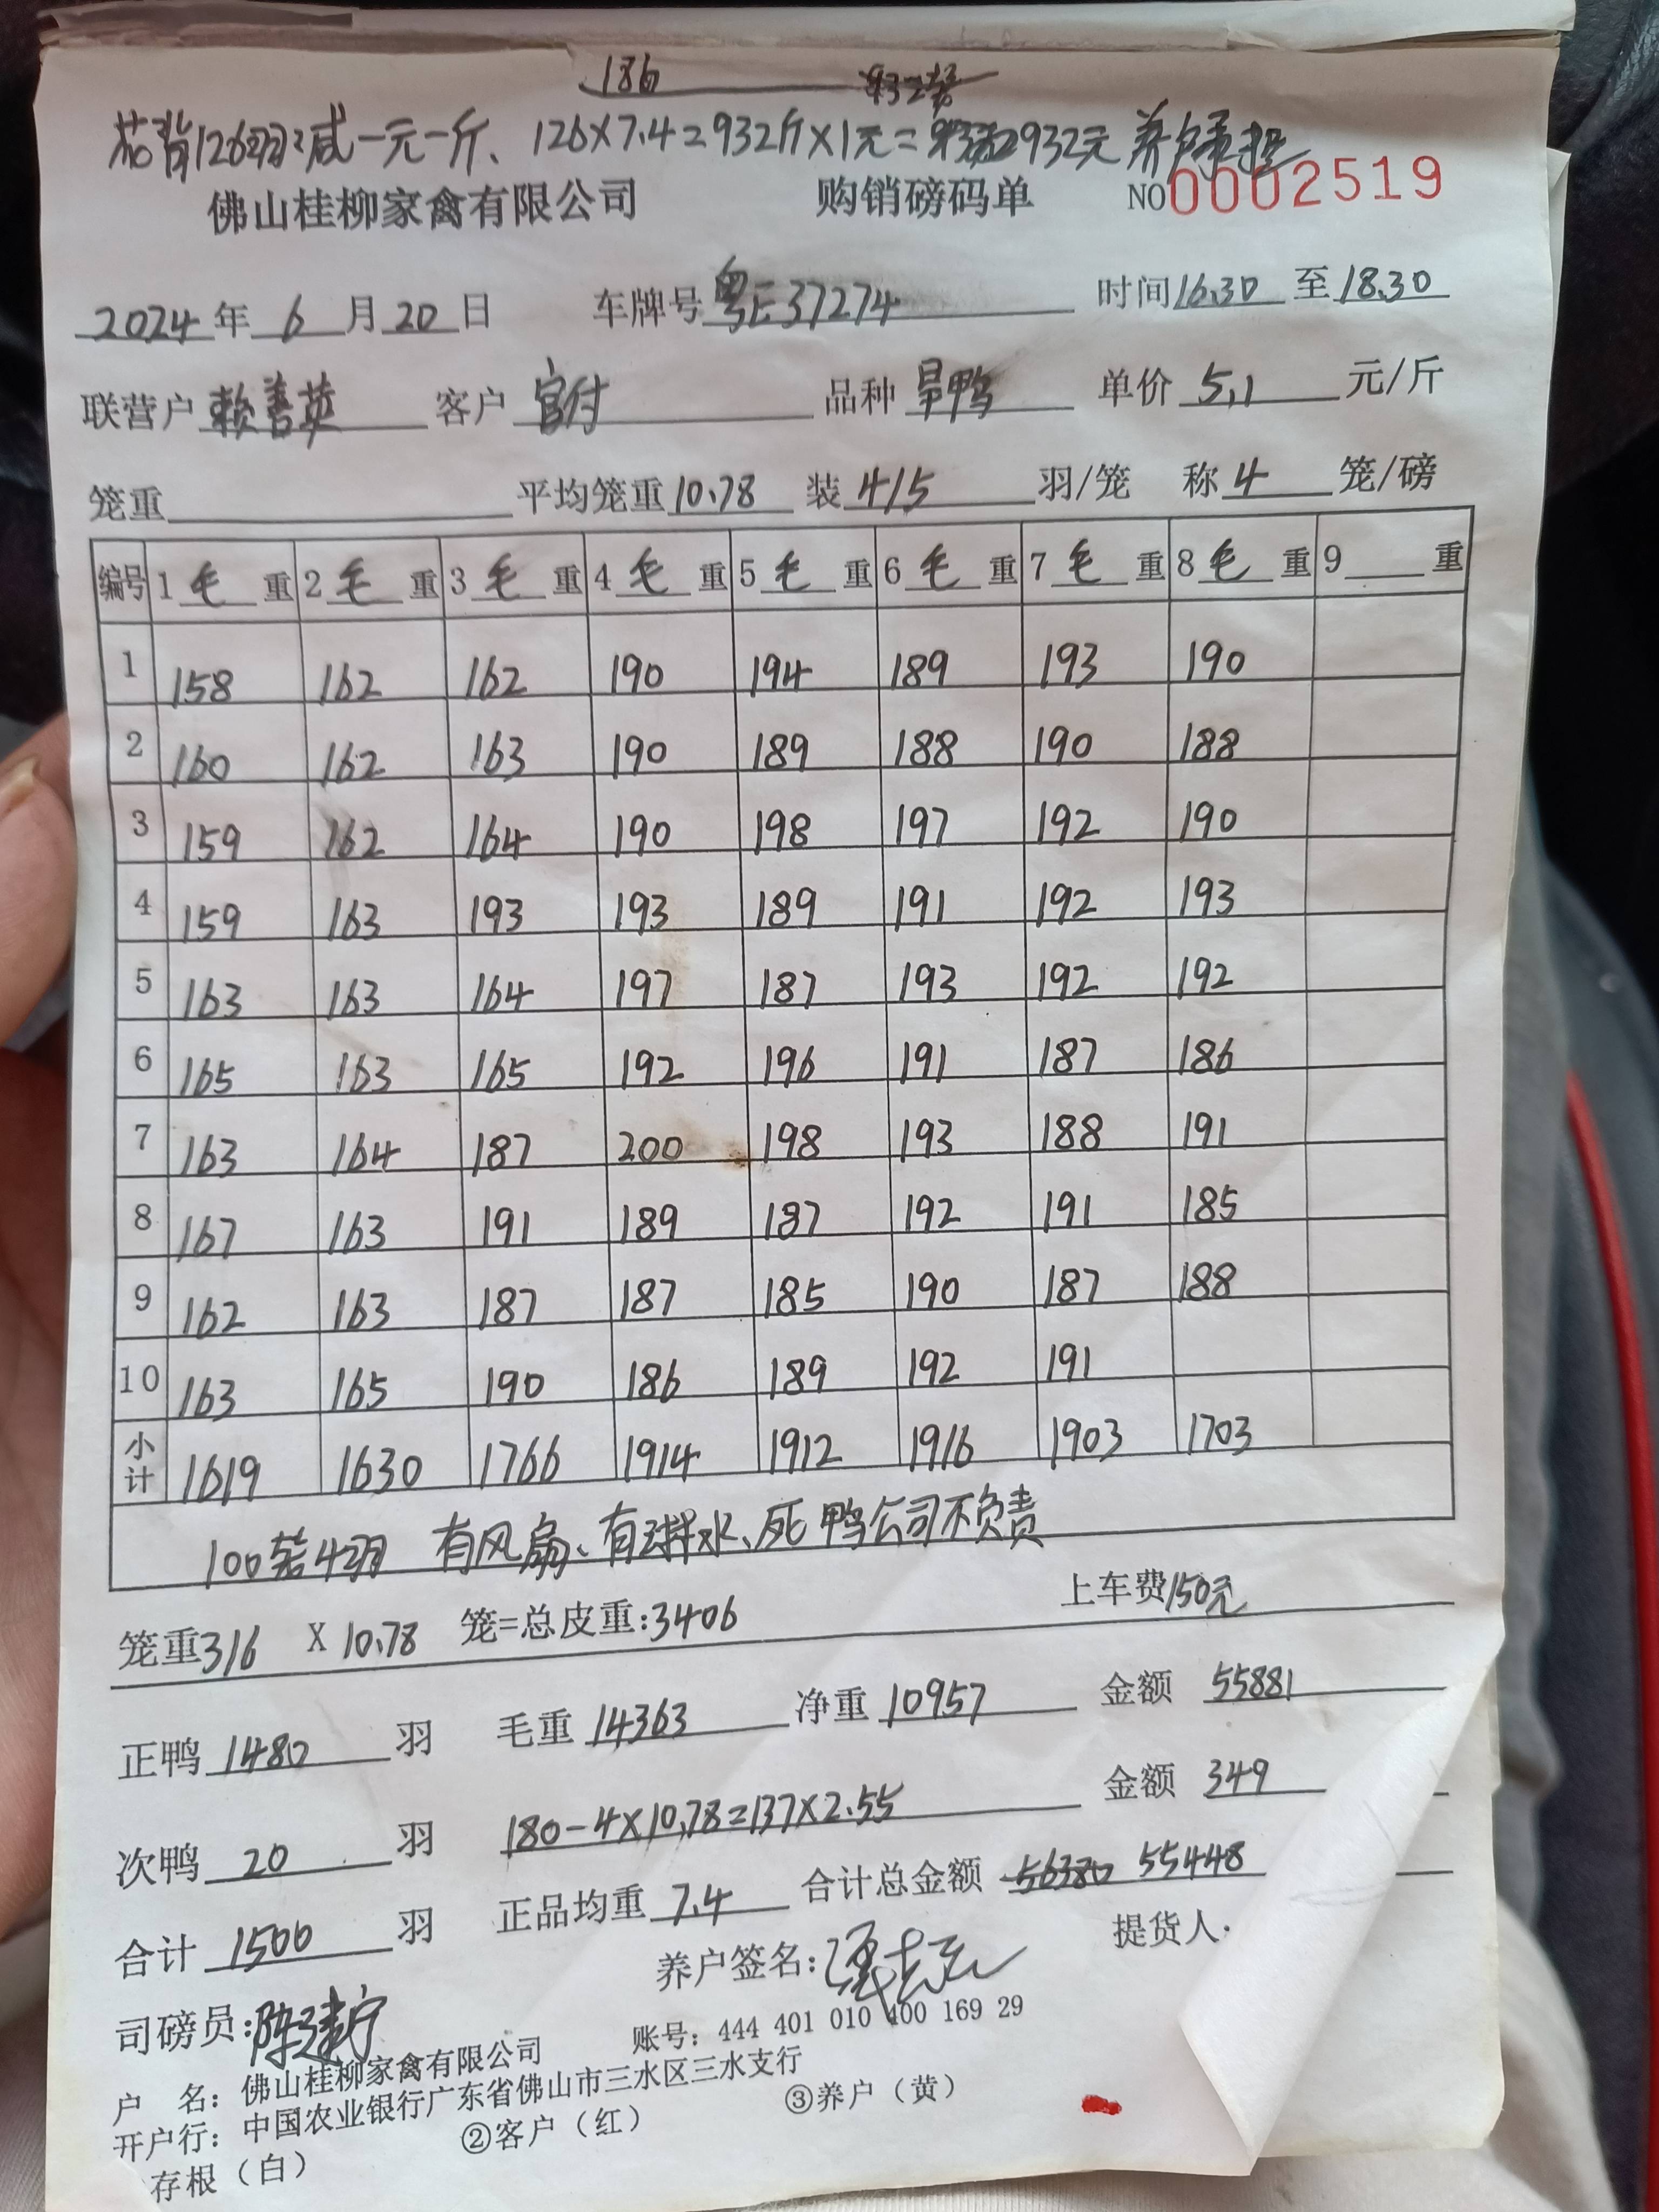 186
花背126羽减一元一斤、126×7.4=932斤×1元=932元 养户承担
佛山桂柳家禽有限公司 购销磅码单 NO0002519
2024年6月20日 车牌号粤E37274 时间16.30至18.30
联营户赖善英 客户官付 品种旱鸭 单价5.1元/斤
笼重 平均笼重10.78 装4/5羽/笼 称4笼/磅
编号 1毛重 2毛重 3毛重 4毛重 5毛重 6毛重 7毛重 8毛重 9重
1 158 162 162 190 194 189 193 190
2 160 162 163 190 189 188 190 188
3 159 162 164 190 198 197 192 190
4 159 163 193 193 189 191 192 193
5 163 163 164 197 187 193 192 192
6 165 163 165 192 196 191 187 186
7 163 164 187 200 198 193 188 191
8 167 163 191 189 187 192 191 185
9 162 163 187 187 185 190 187 188
10 163 165 190 186 189 192 191
小计 1619 1630 1766 1914 1912 1916 1903 1703
100装4羽 有风扇、有淋水、死鸭公司不负责
笼重316 X 10.78 笼=总皮重:3406 上车费150元
正鸭1480羽 毛重14363 净重10957 金额 55881
次鸭20羽 180-4×10.78=137×2.55 金额 349
合计1500羽 正品均重7.4 合计总金额 56380 55448
司磅员:陈建宁 养户签名: 提货人:
户 名：佛山桂柳家禽有限公司 账号：444 401 010 400 169 29
开户行：中国农业银行广东省佛山市三水区三水支行
存根（白） ②客户（红） ③养户（黄）